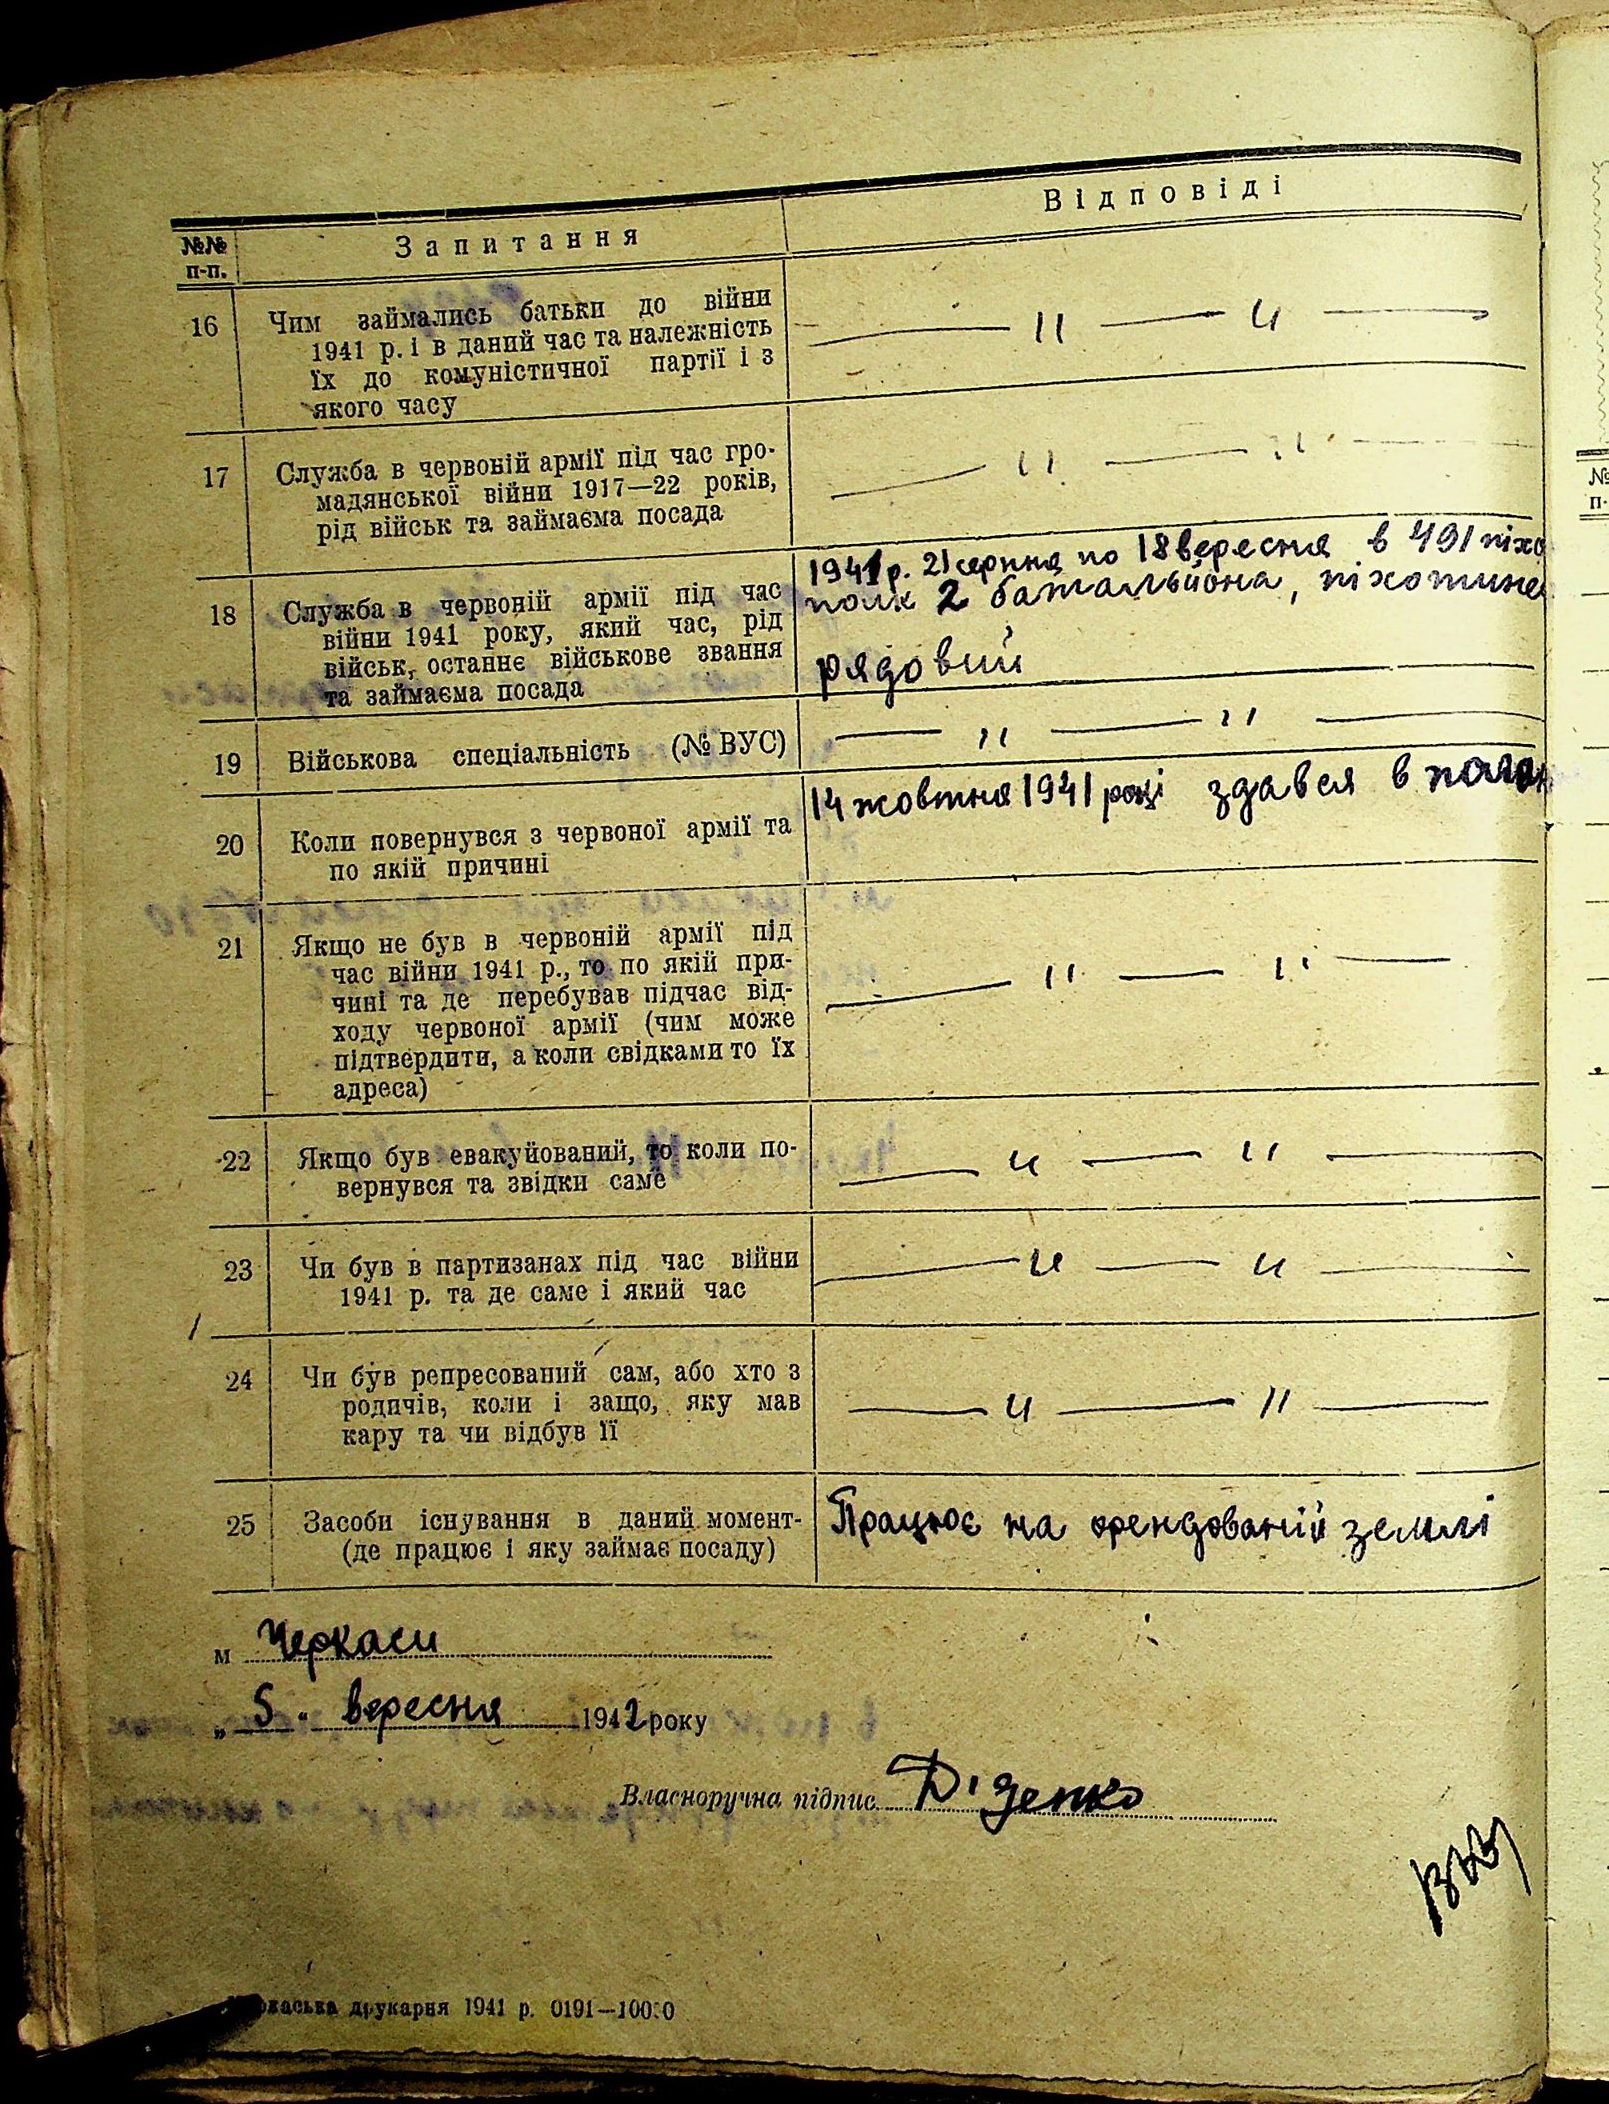 №№ п-п.
Запитання
Відповіді
16
Чим займались батьки до війни
1941 р. і в даний час та належність
їх до комуністичної партії і з
якого часу
— " — " —
17
Служба в червоній армії під час гро-
мадянської війни 1917—22 років,
рід військ та займаєма посада
— " — " —
18
Служба в червоній армії під час
війни 1941 року, який час, рід
військ, останнє військове звання
та займаєма посада
1941 р. 21 серпня по 18 вересня в 491 піхо
полк 2 батальйона, піхотине
рядовий
19
Військова спеціальність (№ ВУС)
— " — " —
20
Коли повернувся з червоної армії та
по якій причині
14 жовтня 1941 році здався в полон
21
Якщо не був в червоній армії під
час війни 1941 р., то по якій при-
чині та де перебував підчас від-
ходу червоної армії (чим може
підтвердити, а коли свідками то їх
адреса)
— " — " —
22
Якщо був евакуйований, то коли по-
вернувся та звідки саме
— " — " —
23
Чи був в партизанах під час війни
1941 р. та де саме і який час
— " — " —
24
Чи був репресований сам, або хто з
родичів, коли і защо, яку мав
кару та чи відбув її
— " — " —
25
Засоби існування в даний момент-
(де працює і яку займає посаду)
Працює на орендованій землі
м Черкаси
„ 5 " вересня 1942 року
Власноручна підпис Діденко
друкарня 1941 р. 0191—10000